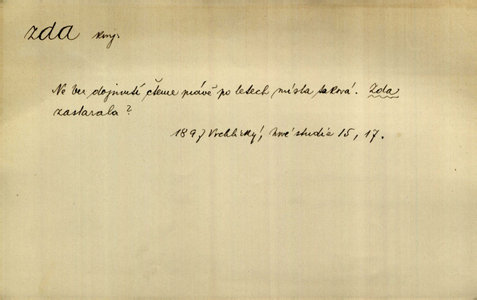 zda knj.
Ne bez dojmutí čteme právě po letech místa taková. Zda
zastarala?
1897 Vrchlický, Nové studie 15, 17.